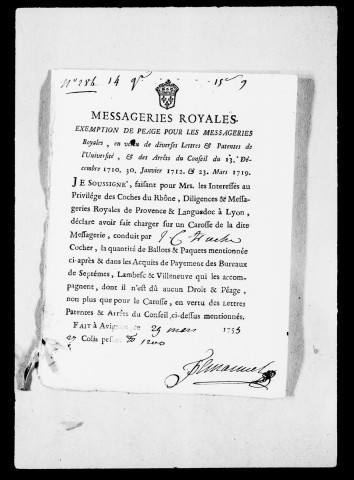 N° 284 14 15 9
MESSAGERIES ROYALES.
EXEMPTION DE PEAGE POUR LES MESSAGERIES
Royales, en vertu de diverses Lettres & Patentes de
l'Université, & des Arrêts du Conseil du 13. Dé-
cembre 1710. 30. Janvier 1712. & 23. Mars 1719.
JE SOUSSIGNÉ, faisant pour Mrs. les Interessés au
Privilége des Coches du Rhône, Diligences & Messa-
geries Royales de Provence & Languedoc à Lyon,
déclare avoir fait charger sur un Carosse de la dite
Messagerie, conduit par
Cocher, la quantité de Ballots & Paquets mentionnée
ci-après & dans les Acquits de Payement des Bureaux
de Septémes, Lambesc & Villeneuve qui les accom-
pagnent, dont il n'est dû aucun Droit & Péage,
non plus que pour le Carosse, en vertu des Lettres
Patentes & Arrêts du Conseil, ci-dessus mentionnés.
FAIT à Avignon 29 mars 1755
27 Colis pesant 1200